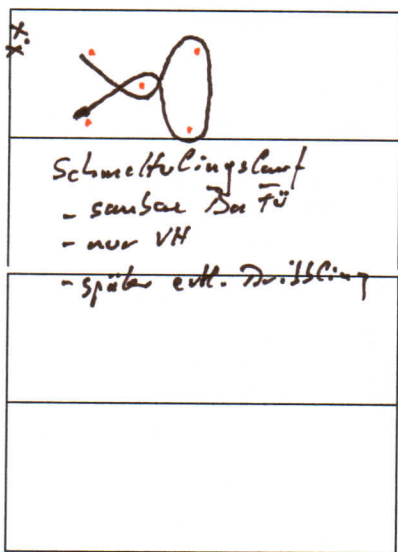 x.
x.
Schmetterlingslauf
- saubere Ba Fü
- nur VH
- später evtl. Dribbling